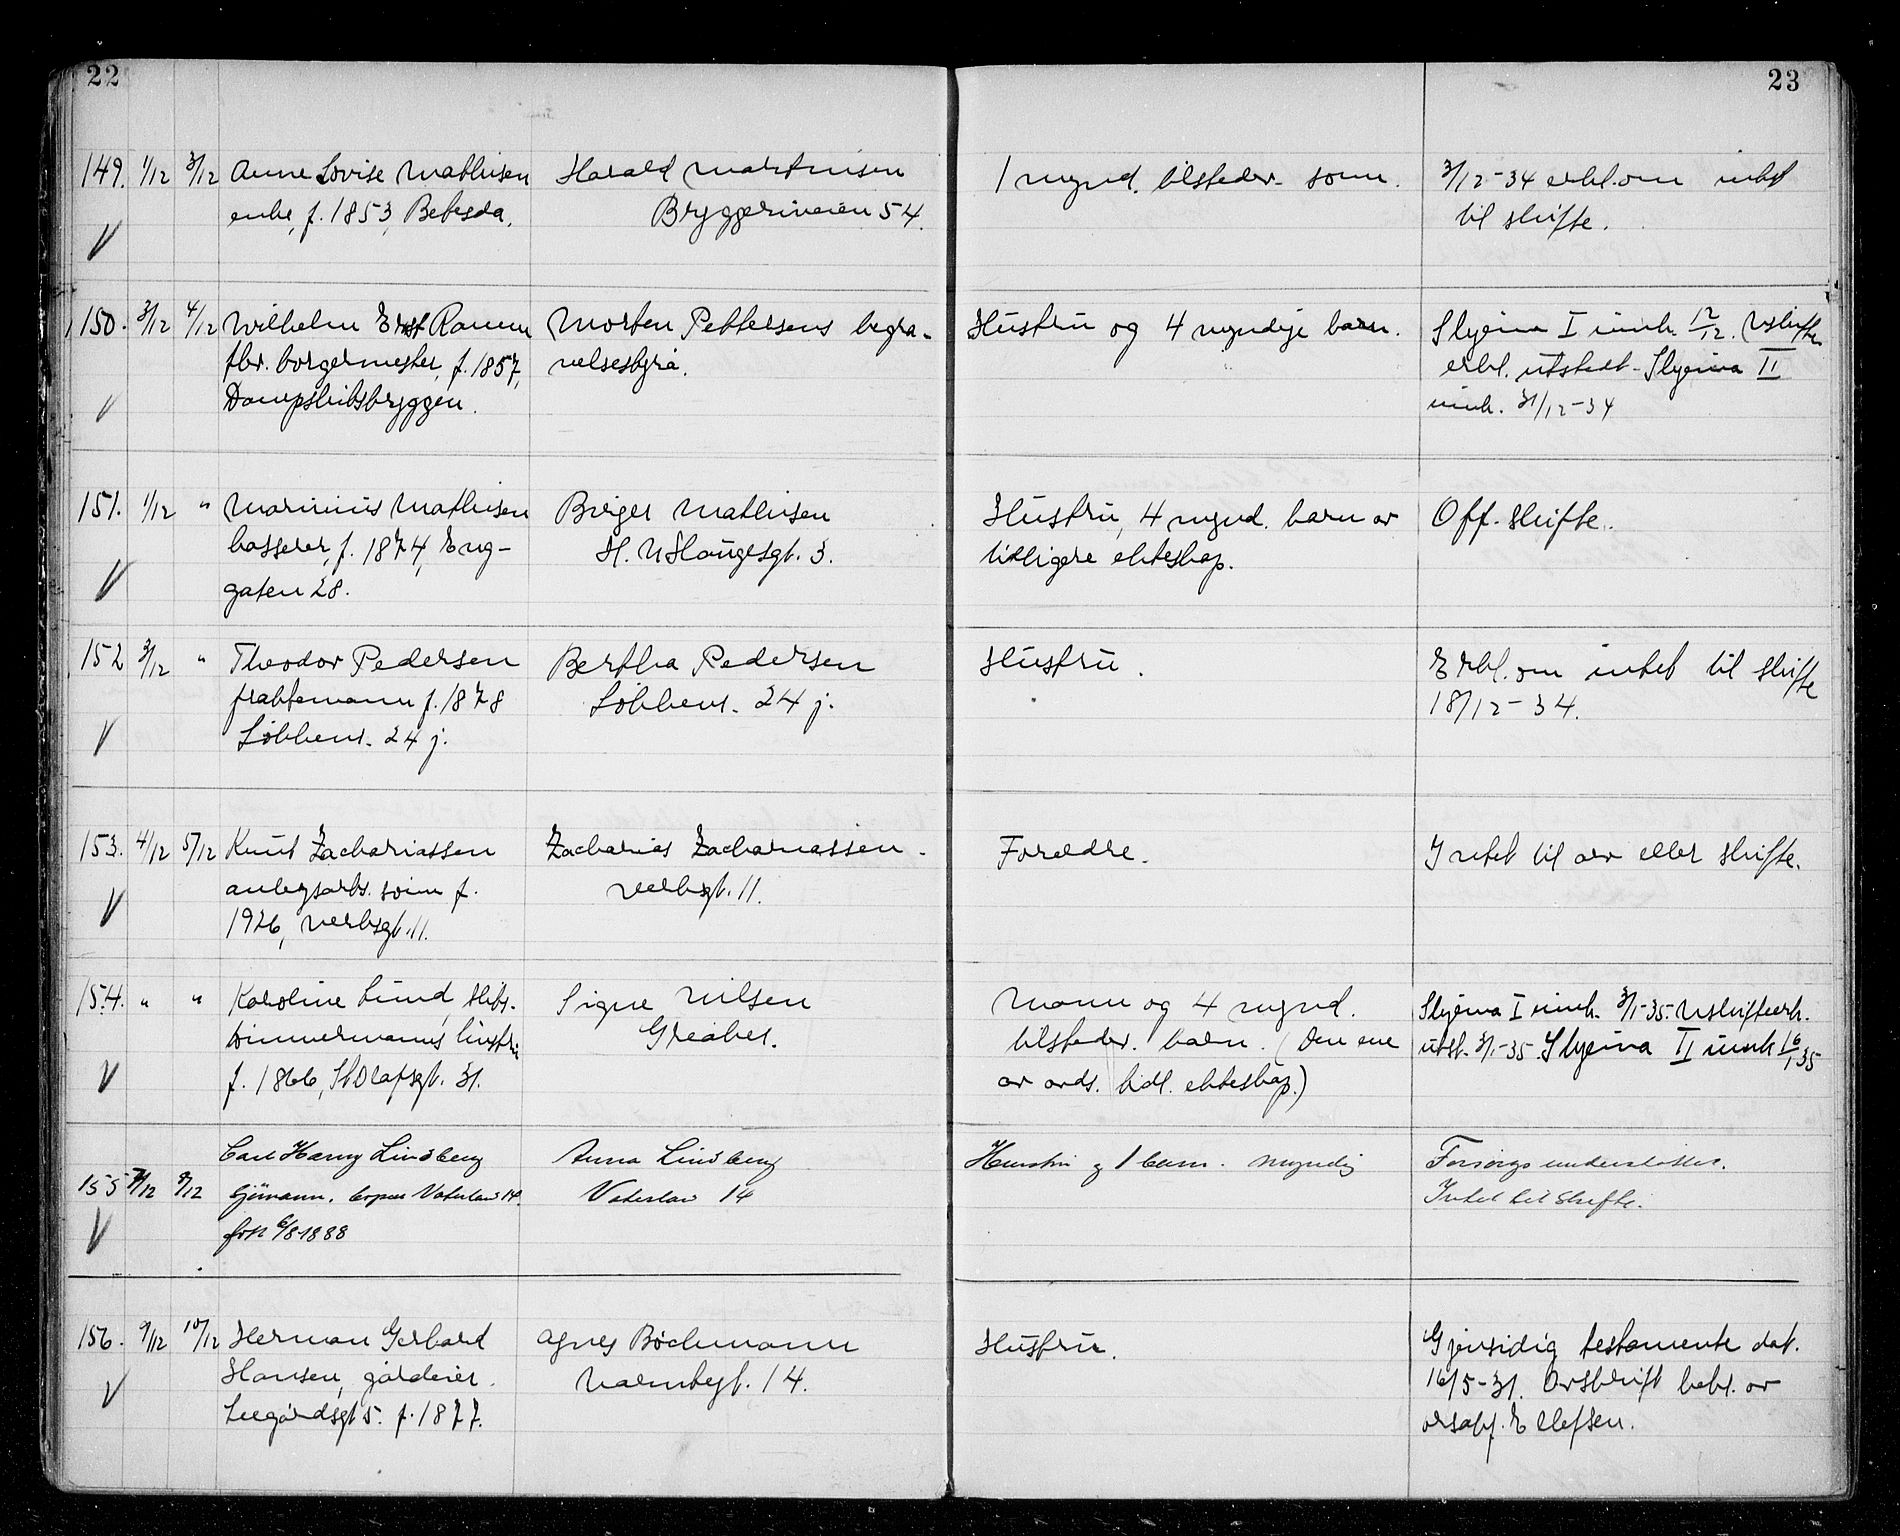 22
23
149. 1/12 3/12 Anne Lovise Mathisen Harald Martinsen 1 mynd. tilsteder. sønn. 3/12-34 erkl. om intet
enke, f. 1853, Betesda. Bryggeriveien 54. til skifte.
150. 3/12 4/12 Wilhelm Ernst Ramm Morten Pettersens begra- Hustru og 4 myndige barn. Skjema I innk. 12/12. Uskifte
fhv. borgermester, f. 1857, velsesbyrå. erkl. utstedt - Skjema II
Dampskibsbryggen. innk. 31/12-34
151. 1/12 " Marinius Mathisen Birger Mathisen Hustru, 4 mynd. barn av Off. skifte.
kasserer, f. 1874, Eng- H. N. Haugesgt. 3. tidligere ekteskap.
gaten 28.
152 3/12 " Theodor Pedersen Bertha Pedersen Hustru. Erkl. om intet til skifte
fraktemann f. 1878 Løkkens. 24 j. 18/12-34.
Løkkens. 24 j.
153. 4/12 5/12 Knut Zachariassen Zacharias Zachariassen. Foreldre. Intet til arv eller skifte.
anlegsarb. sønn f. Verksgt. 11.
1926, Verksgt. 11.
154. " " Karoline Lund, skibs- Signe Nilsen Mann og 4 mynd. Skjema I innk. 3/1-35. Uskifteerk.
timmermanns hustru Greåker. tilsteder. barn. (Den ene utst. 3/1-35. Skjema II innk 16/1 35
f. 1866, St Olafsgt. 31. av avds. tidl. ekteskap.)
Carl Harry Lindberg Anna Lindberg Hustru og 1 barn. myndig Forsorgsunderstøttet.
155 7/12 8/12 Sjømann. Vaterland 14. Vaterland 14 Intet til skifte.
født 6/8-1888
156. 9/12 10/12 Herman Gerhard Agnes Bøckmann Hustru. Gjensidig testamente dat.
Hansen, gårdeier. Valmbegt. 14. 16/5-31. Avskrift bekr. av
Leegårdsgt 5. f. 1877. o.r.sakf. Ellefsen.